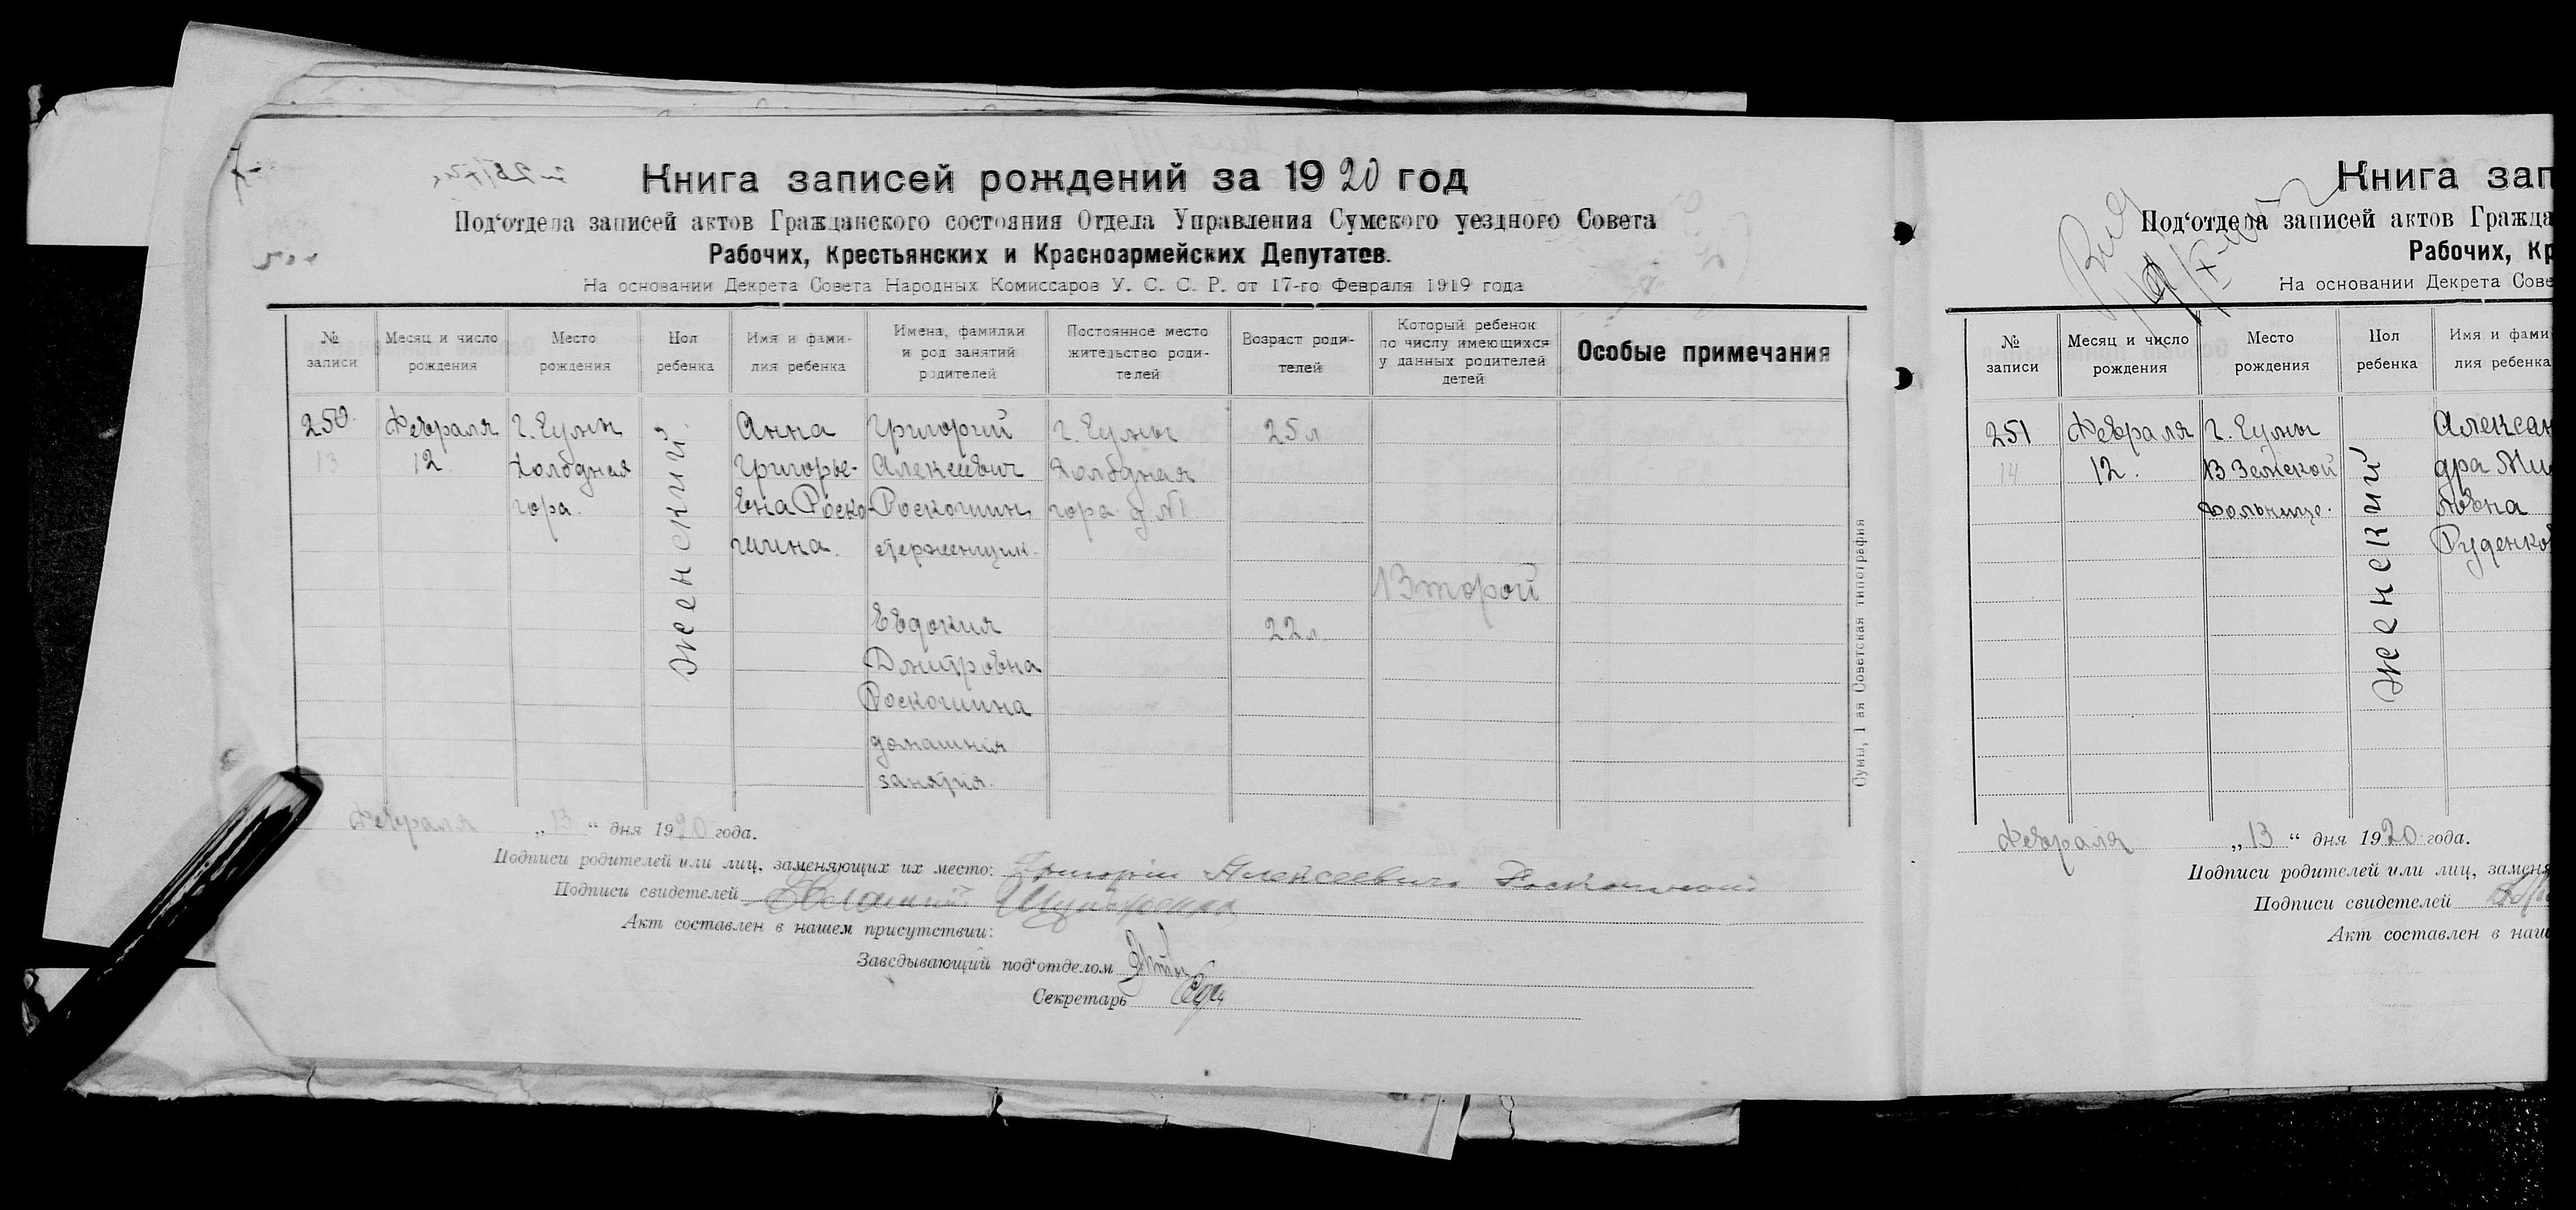 Книга записей рождений за 1920 год
Под‘отдела записей актов Гражданского состояния Отдела Управления Сумского уездного Совета
Рабочих, Крестьянских и Красноармейских Депутатов.
На основании Декрета Совета Народных Комиссаров У. С. С. Р. от 17-го Февраля 1919 года
№ записи
Месяц и число рождения
Место рождения
Пол ребенка
Имя и фами-
лия ребенка
Имена, фамилии
и род занятий
родителей
Постоянное место
жительство роди-
телей
Возраст роди-
телей
Который ребенок
по числу имеющихся
у данных родителей
детей
Особые примечания
250.
13
Февраля
12.
г. Сумы
Холодная
гора.
женский.
Анна
Григорье-
вна Роско-
шина.
Григорий
Алексеевич
Роскошин
стерженщик.
Евдокия
Дмитровна
Роскошина
домашнія
занятия.
г. Сумы
Холодная
гора д №1
25 л
22 л.
Второй
Сумы, 1 ая Советская типография
Февраля „13“ дня 1920 года.
Подписи родителей или лиц, заменяющих их место: Григорий Алексеевич
Подписи свидетелей
Акт составлен в нашем присутствии:
Заведывающий под‘отделом
Секретарь
Книга зап
Под‘отдела записей актов Гражда
Рабочих, Кр
На основании Декрета Сове
№ записи
Месяц и число рождения
Место рождения
Пол ребенка
Имя и фами
лия ребенка
251
14
Февраля
12.
г. Сумы
В Земской
больнице.
женский
Алексан
дра Ми
ловна
Руденко
Февраля „13“ дня 1920 года.
Подписи родителей или лиц, заменя
Подписи свидетелей
Акт составлен в наш